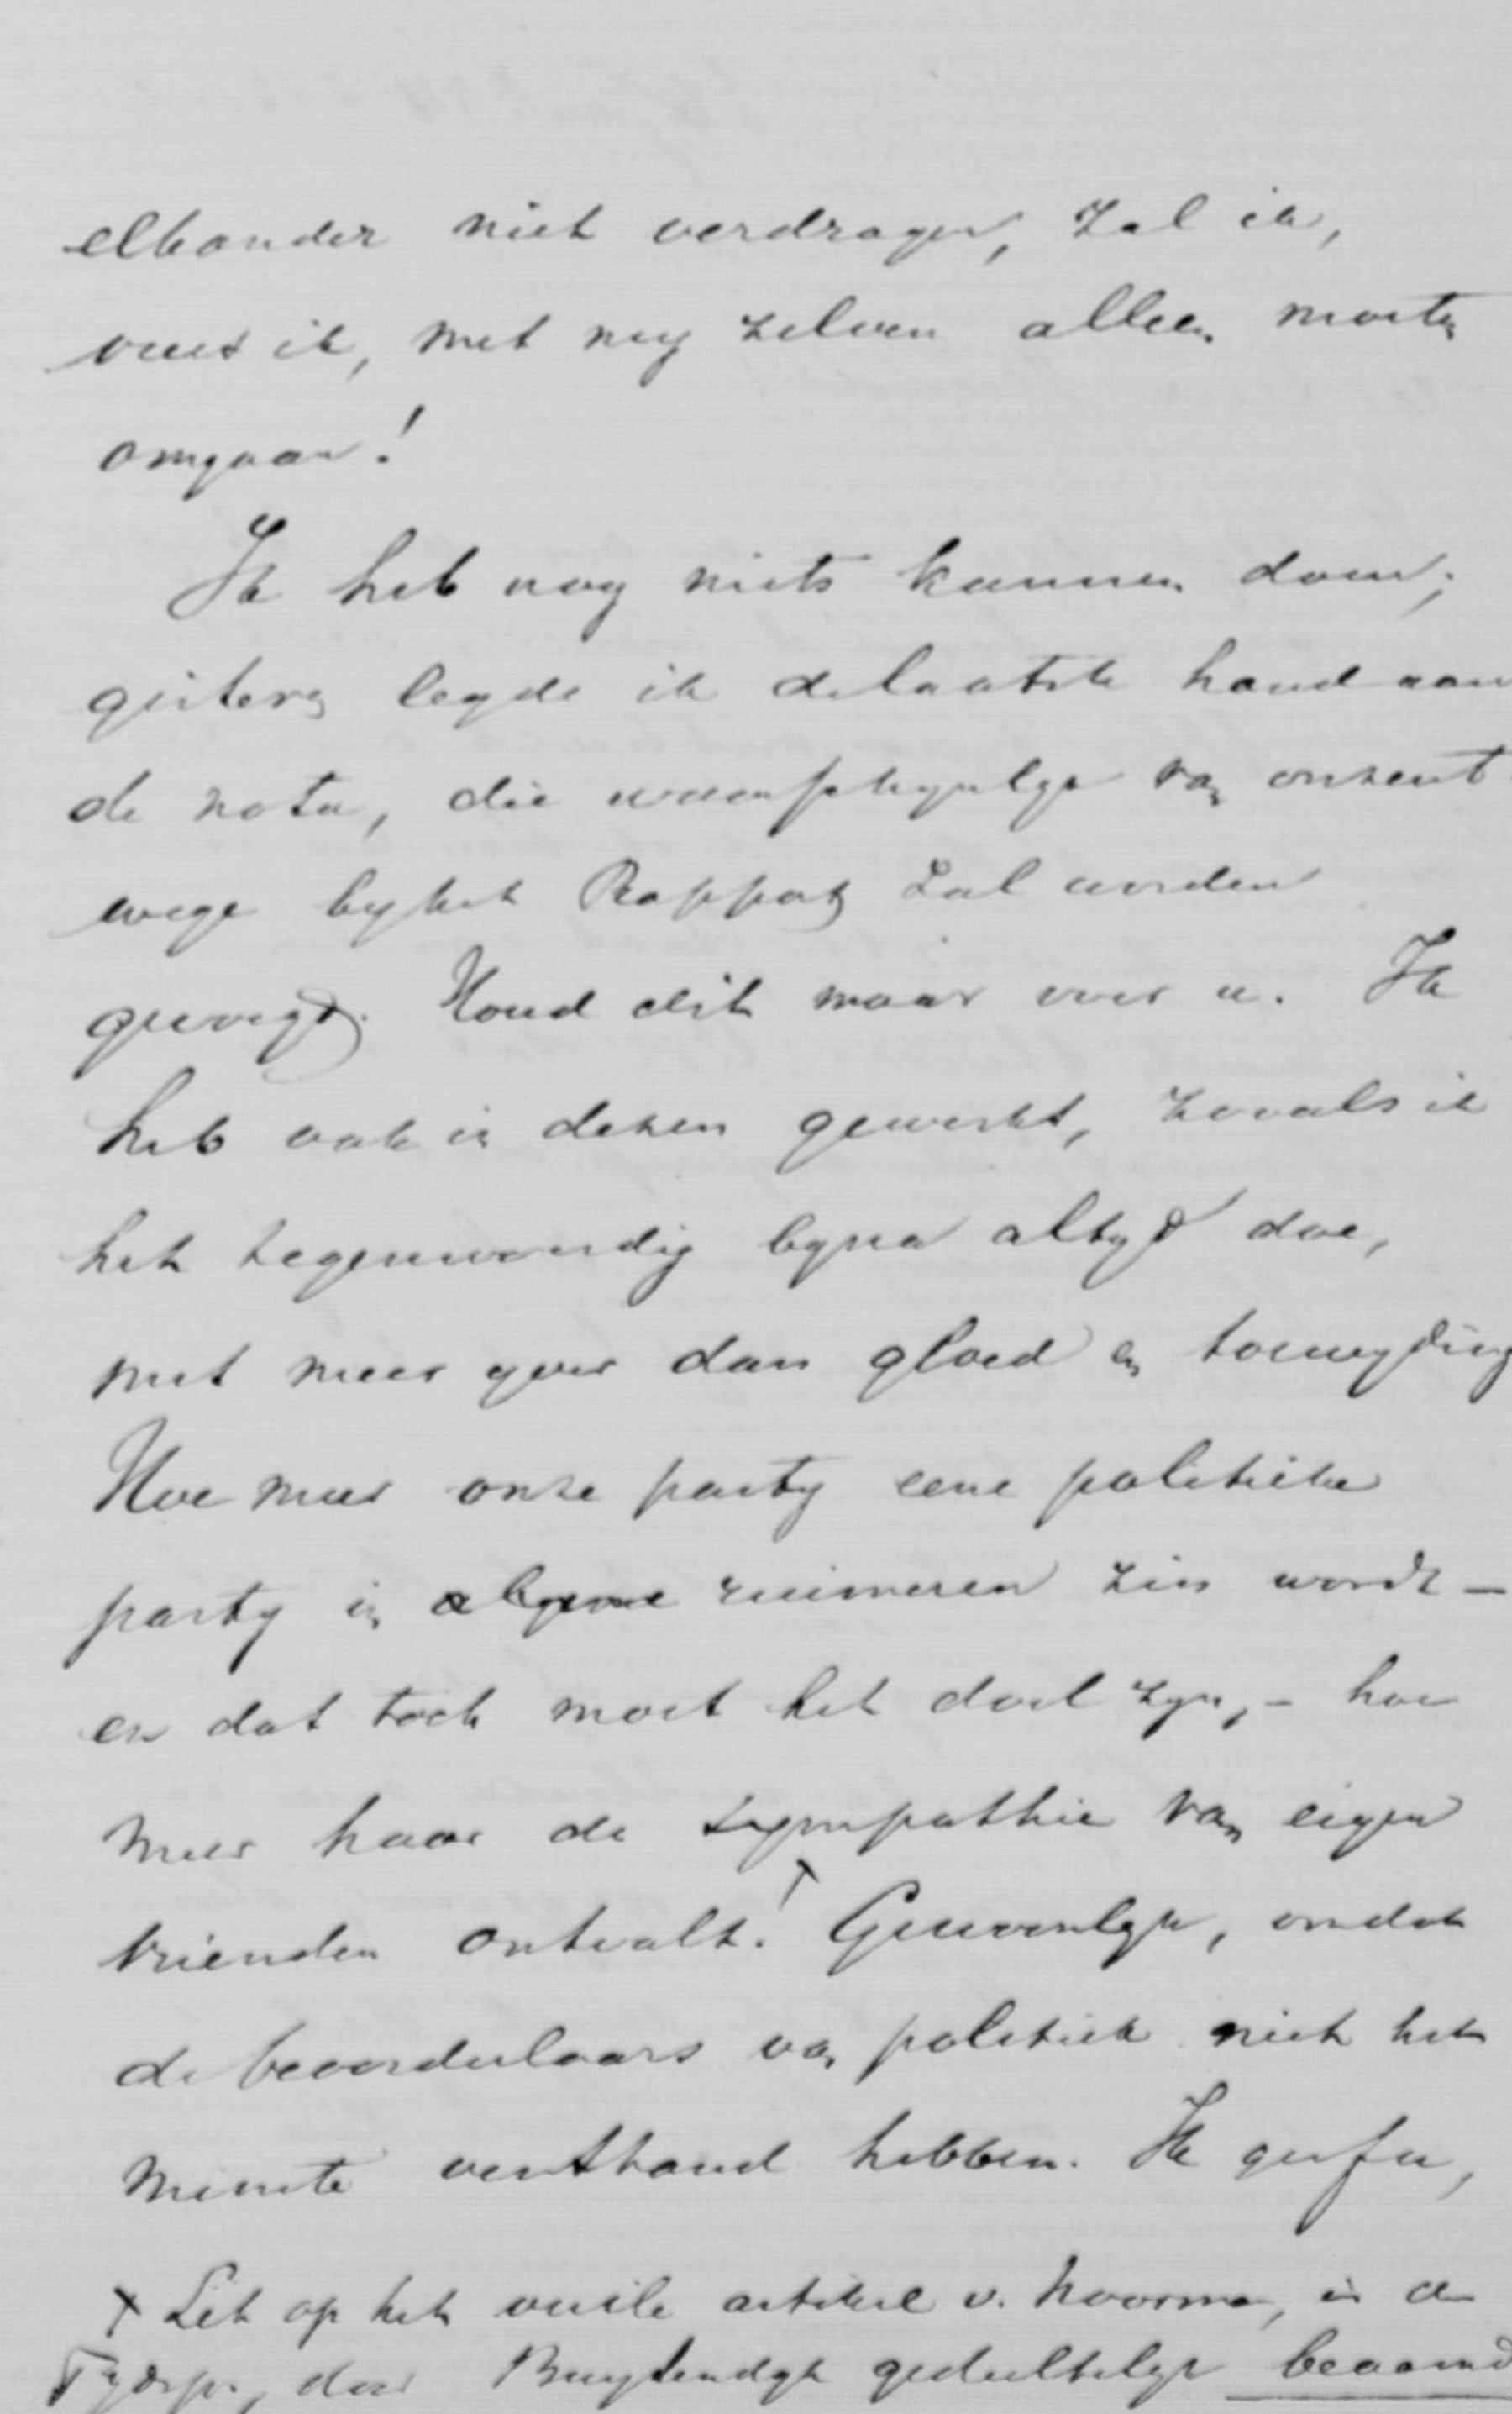 elkander niet verdragen, zal ik,
vrees ik, met my zelven alleen moeten
omgaan!
Ik heb nog niets kunnen doen;
gisteren legde ik de laatste hand aan
de nota, die waarschynlyk van onzent
wege by het Rapport zal worden
gevoegd. Houd dit maar voor u. Ik
heb ook in dezen gewerkt, zooals ik
het tegenwoordig byna altyd doe,
met meer yver dan gloed en toewyding
Hoe meer onze party eene politieke
party in ruimeren zin wordt –
en dat toch moet het doel zyn, – hoe
meer haar de sympathie van eigen
vrienden ontvalt. Gewoonlyk, omdat
de beoordeelaars van politiek niet het
minste verstand hebben. Ik geef u,
x Let op het vuile artikel v. Noorman, in de
Tydsp., door Buytendyk gedeeltelyk beaamd